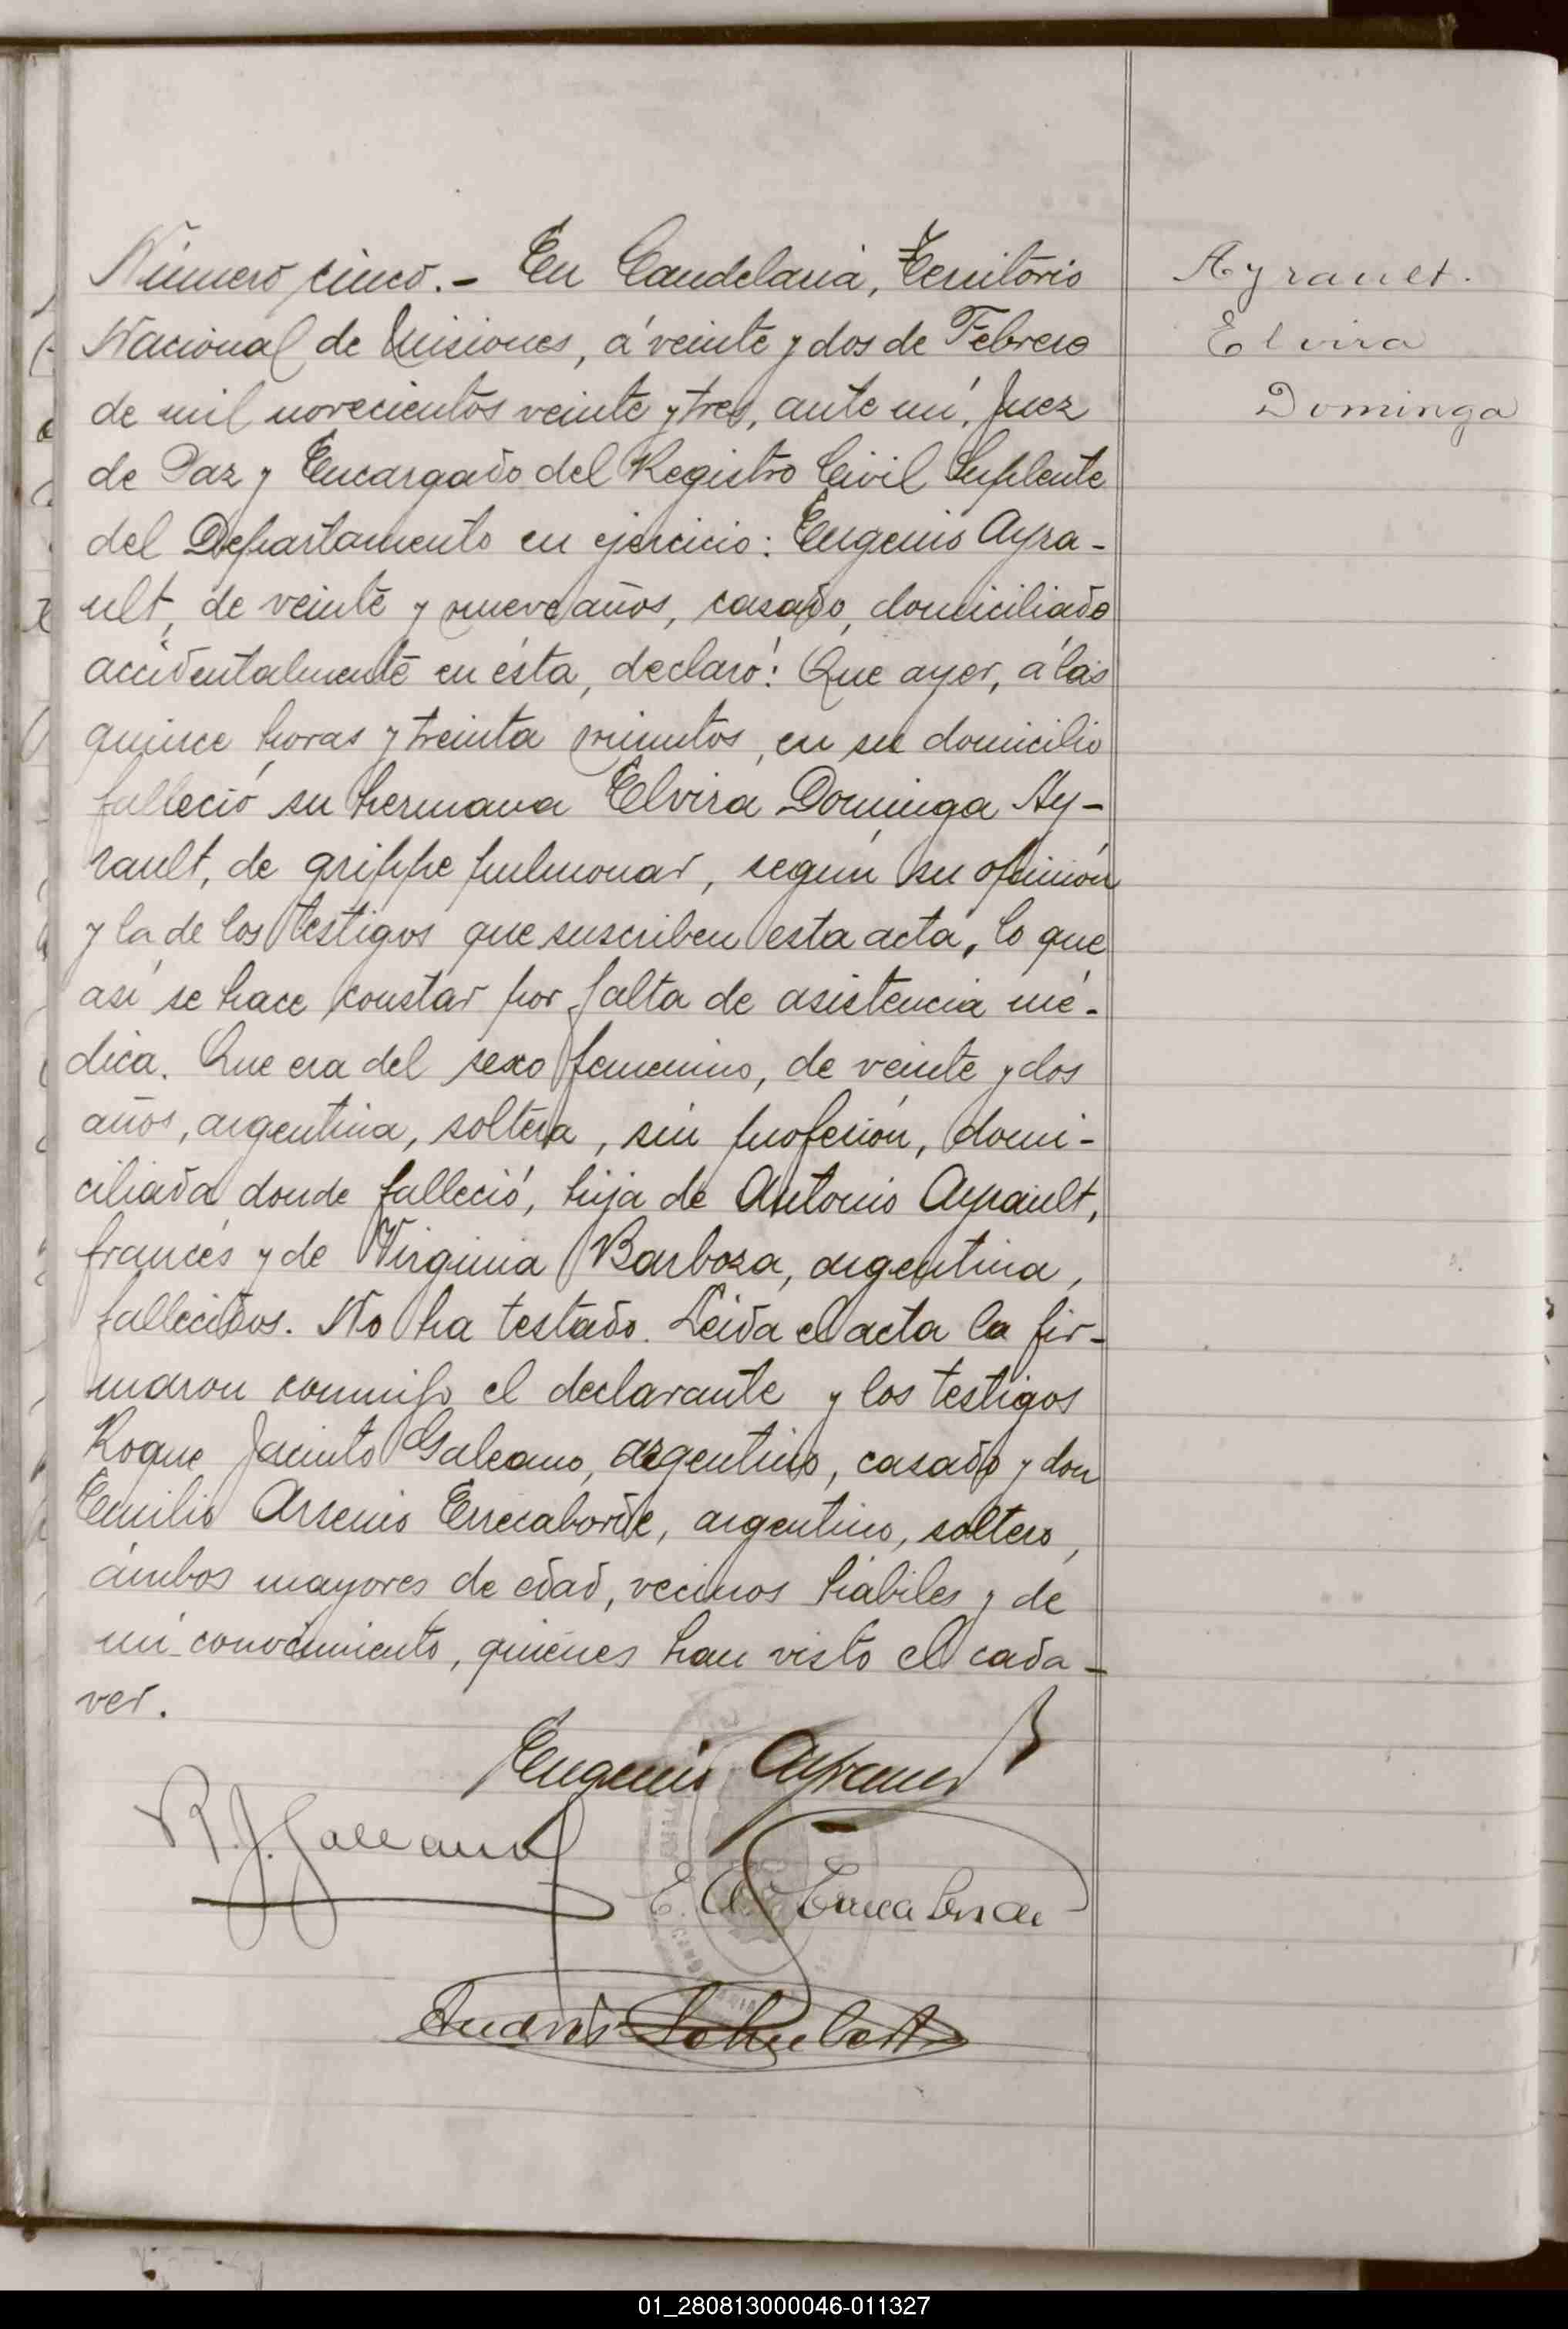 Número cinco.- En Candelaria, Territorio
Nacional de Misiones, á veinte y dos de Febrero
de mil novecientos veinte y tres, ante mí, Juez
de Paz y Encargado del Registro Civil Suplente
del Departamento en ejercicio: Eugenio Ayra-
ult, de veinte y nueve años, casado, domiciliado
accidentalmente en ésta, declaró: Que ayer, á las
quince horas y treinta minutos, en su domicilio
falleció su hermana Elvira Dominga Ay-
rault, de grippe pulmonar, según su opinión
y la de los testigos que suscriben esta acta, lo que
así se hace constar por falta de asistencia mé-
dica. Que era del sexo femenino, de veinte y dos
años, argentina, soltera, sin profesión, domi-
ciliada donde falleció, hija de Antonio Ayrault,
francés y de Virginia Barboza, argentina,
fallecidos. No ha testado. Leida el acta la fir-
maron conmigo el declarante y los testigos
Roque Jacinto Galeano, argentino, casado y don
Emilio Arsenio Errecaborde, argentino, soltero,
ámbos mayores de edad, vecinos hábiles y de
mi conocimiento, quiénes han visto el cada-
ver.
Ayrault.
Elvira
Dominga
Eugenio Ayrault
R. J. Galeano
E. A. Errecaborde
Andrés Schubert
01_280813000046-011327